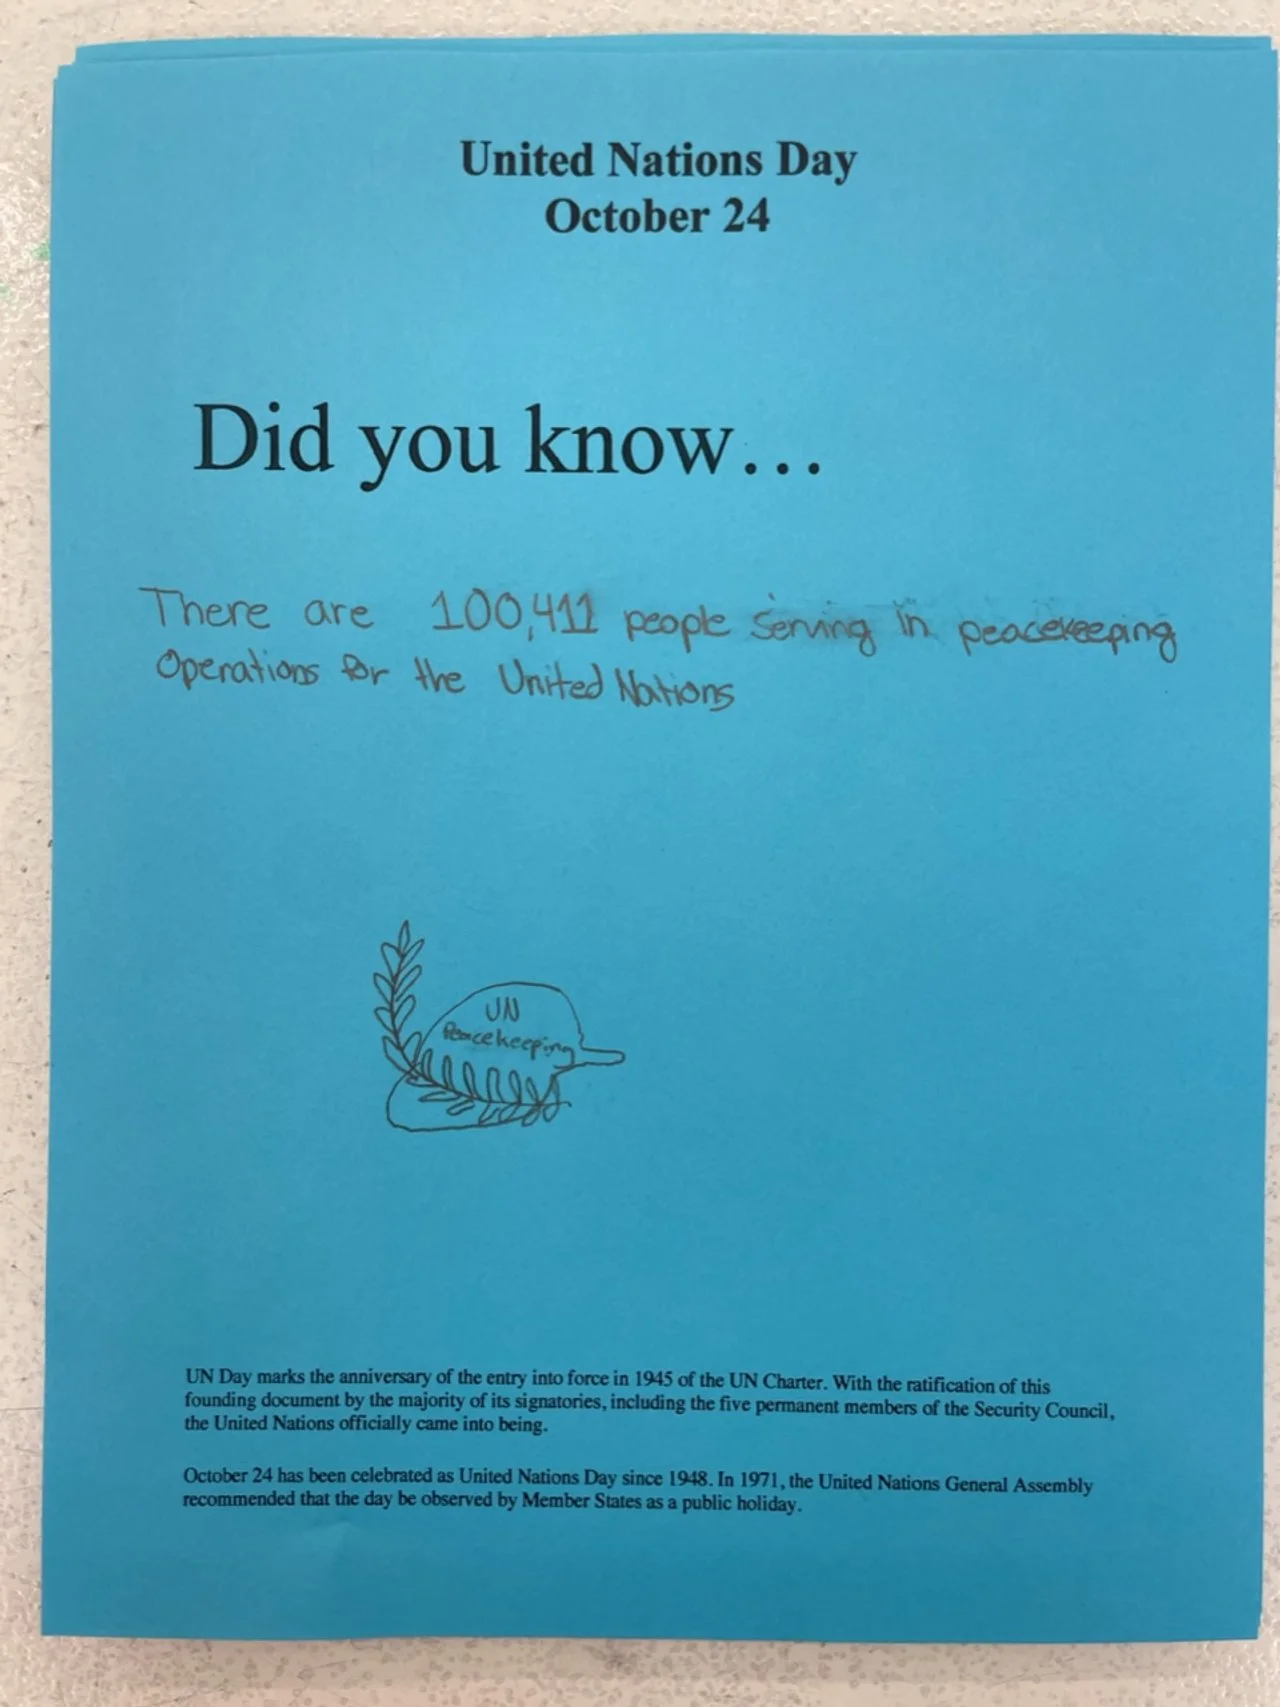 United Nations Day
October 24
Did you know...
There are 100,411 people serving in peacekeeping
Operations for the United Nations
UN
Peacekeeping
UN Day marks the anniversary of the entry into force in 1945 of the UN Charter. With the ratification of this
founding document by the majority of its signatories, including the five permanent members of the Security Council,
the United Nations officially came into being.
October 24 has been celebrated as United Nations Day since 1948. In 1971, the United Nations General Assembly
recommended that the day be observed by Member States as a public holiday.